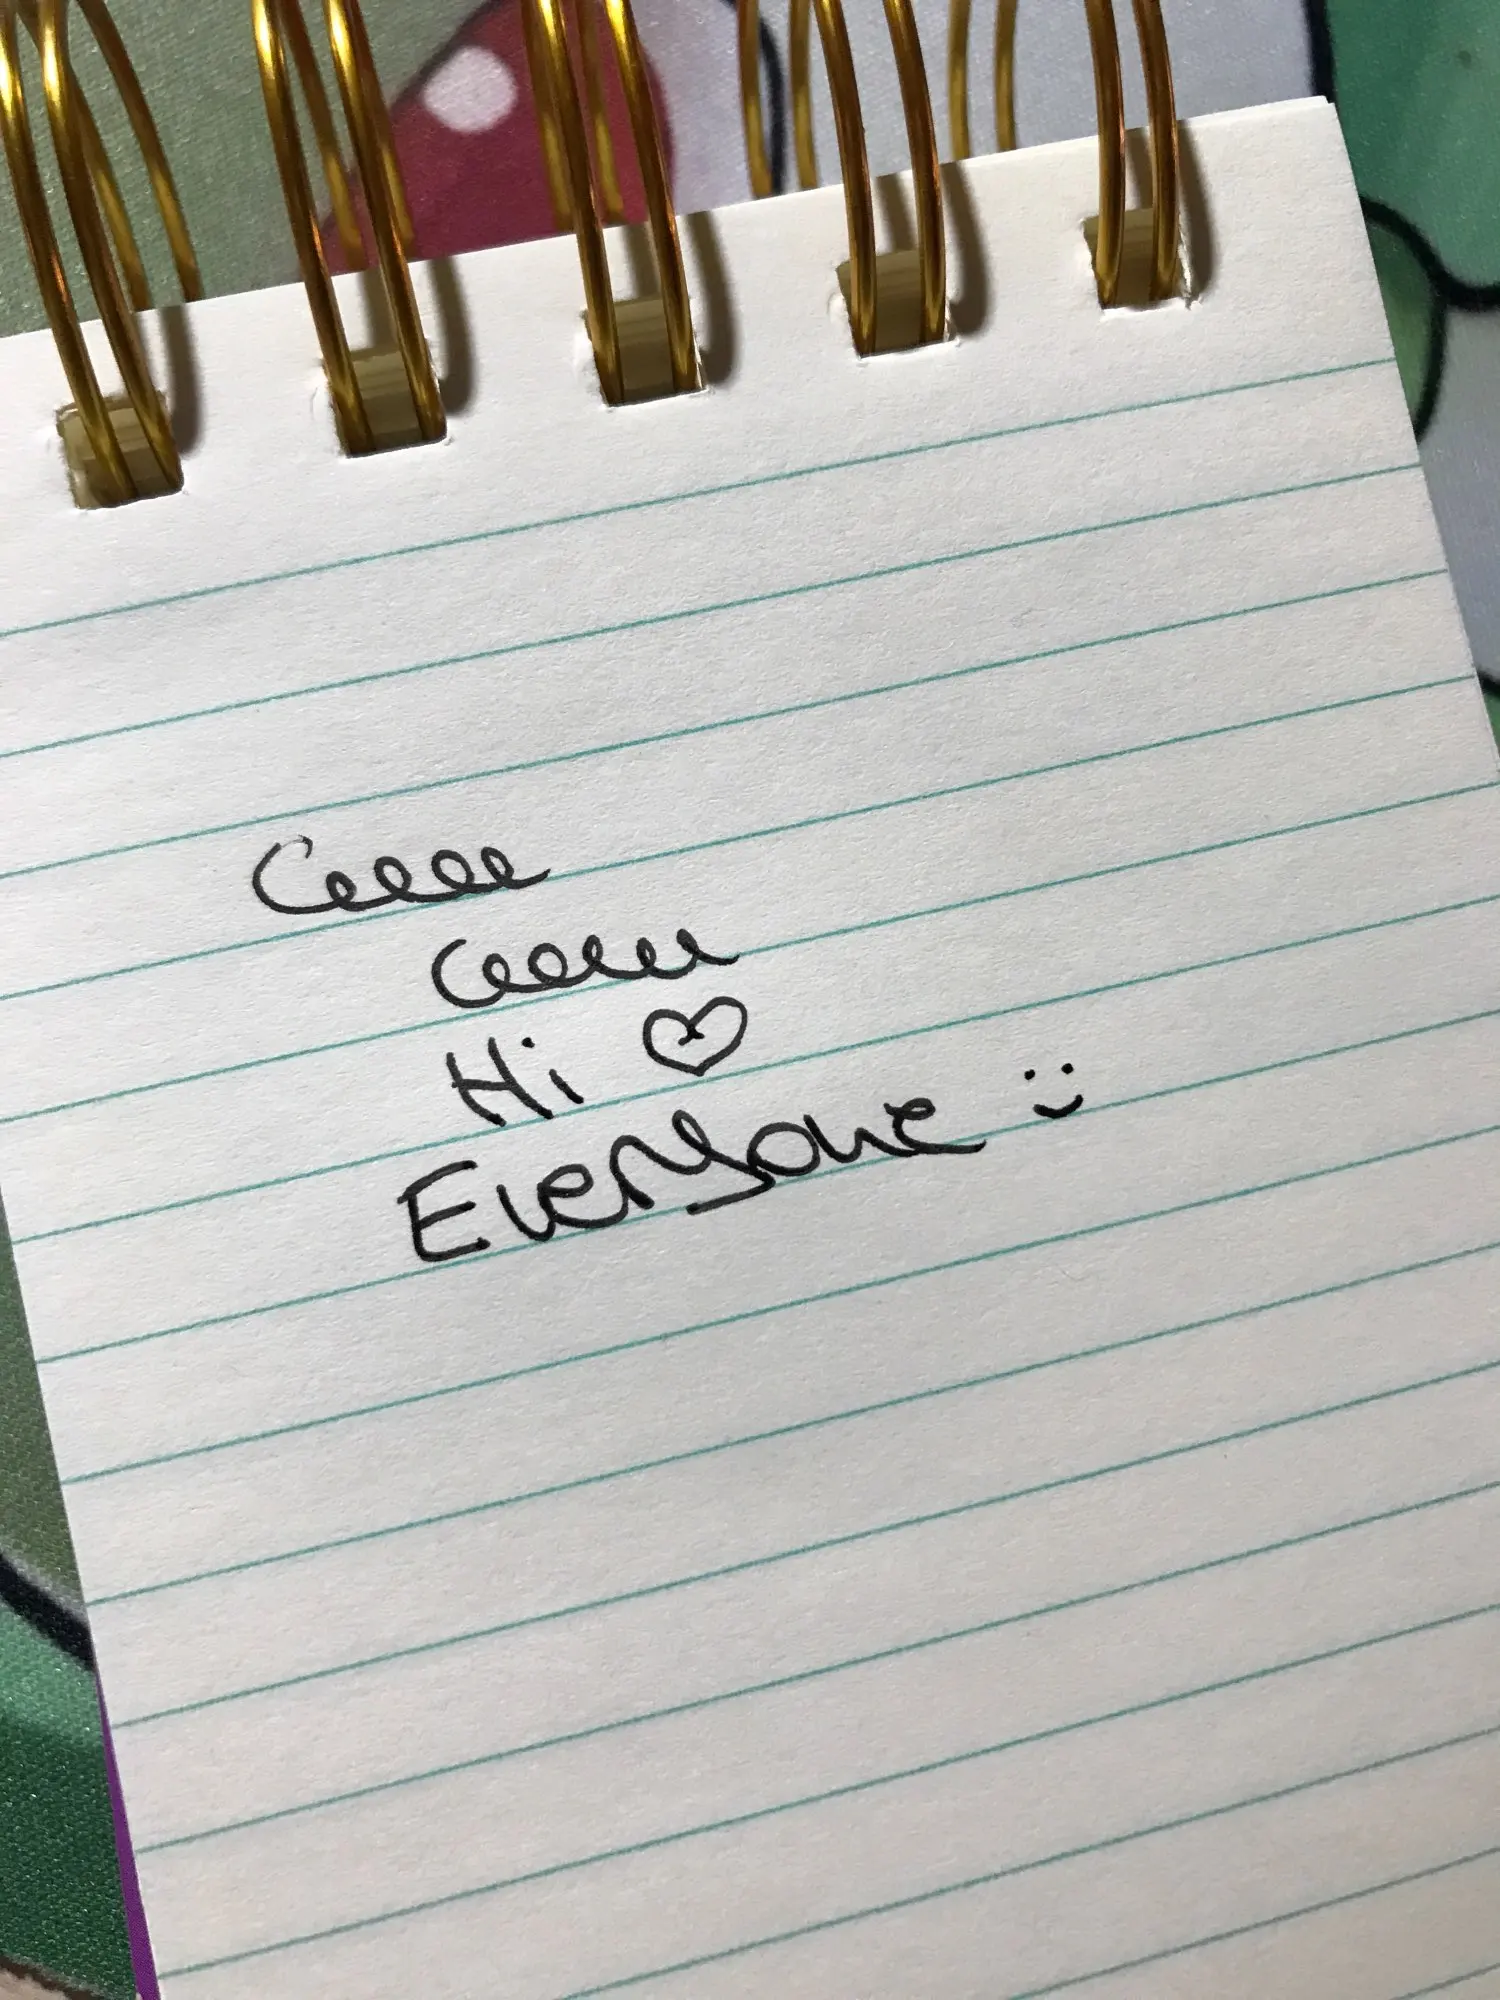 Ceeee
Ceeeee
Hi ♡
Everyone :)